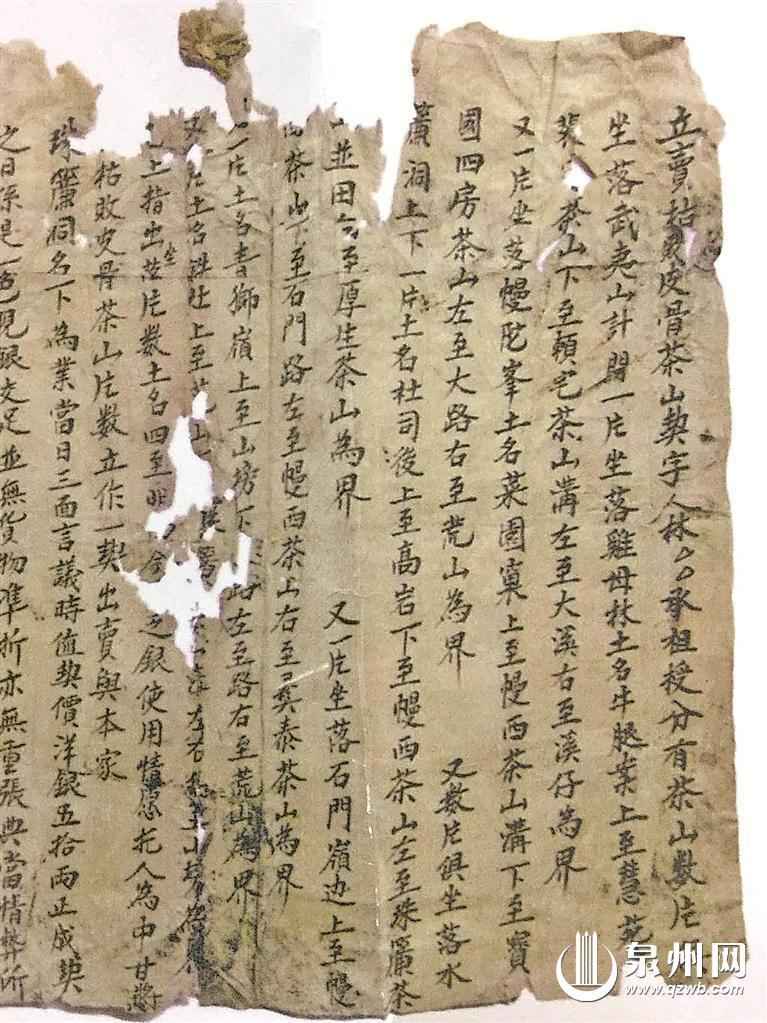 立賣枯敗皮骨茶山契字人林厶厶承祖授分有茶山數片
坐落武夷山計開一片坐落雞母林土名牛腿案上至慧苑
茶山下至賴宅茶山溝左至大溪右至溪仔為界
又一片坐落幔陀峯土名菜園窠上至幔西茶山溝下至寶
國四房茶山左至大路右至荒山為界 又數片俱坐落水
簾洞上下一片土名杜司後上至高岩下至幔西茶山左至珠簾茶
並田 至厚生茶山為界 又一片坐落石門嶺边上至幔
茶山下至石門路左至幔西茶山右至 泰茶山為界
一片土名青獅嶺上至山塝下 路左至路右至荒山為界
又 片土名 上至荒山 左右
上指出坐落片數土名四至明 今 乏銀使用情愿托人為中甘將
枯敗皮骨茶山片數立作一契出賣與本家
珠簾洞名下為業當日三面言議時值契價洋銀五拾兩正成契
之日係是一色現銀交足並無貨物準折亦無重張典當情弊所
泉州网
www.qzwb.com